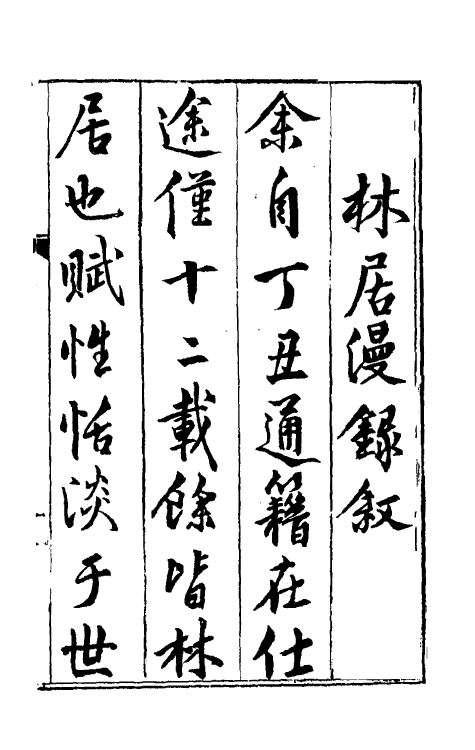 林居漫録敘
余自丁丑通籍在仕
途僅十二載餘皆林
居也賦性恬淡于世